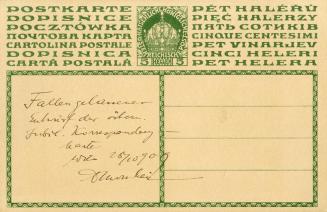 POSTKARTE
DOPISNICE
POCZTÓWKA
ПОЧТОВА КАРТА
CARTOLINA POSTALE
DOPISNICA
CARTĂ POSTALĂ
5 5
PĚT HALÉŘŮ
PIĘĆ HALERZY
ПЯТЬ СОТИКІВ
CINQUE CENTESIMI
PET VINARJEV
CINCI HELERI
PET HELERA
Fallen gelassener
Entwurf der österr.
Jubil. Korrespondenz
karte
Wien